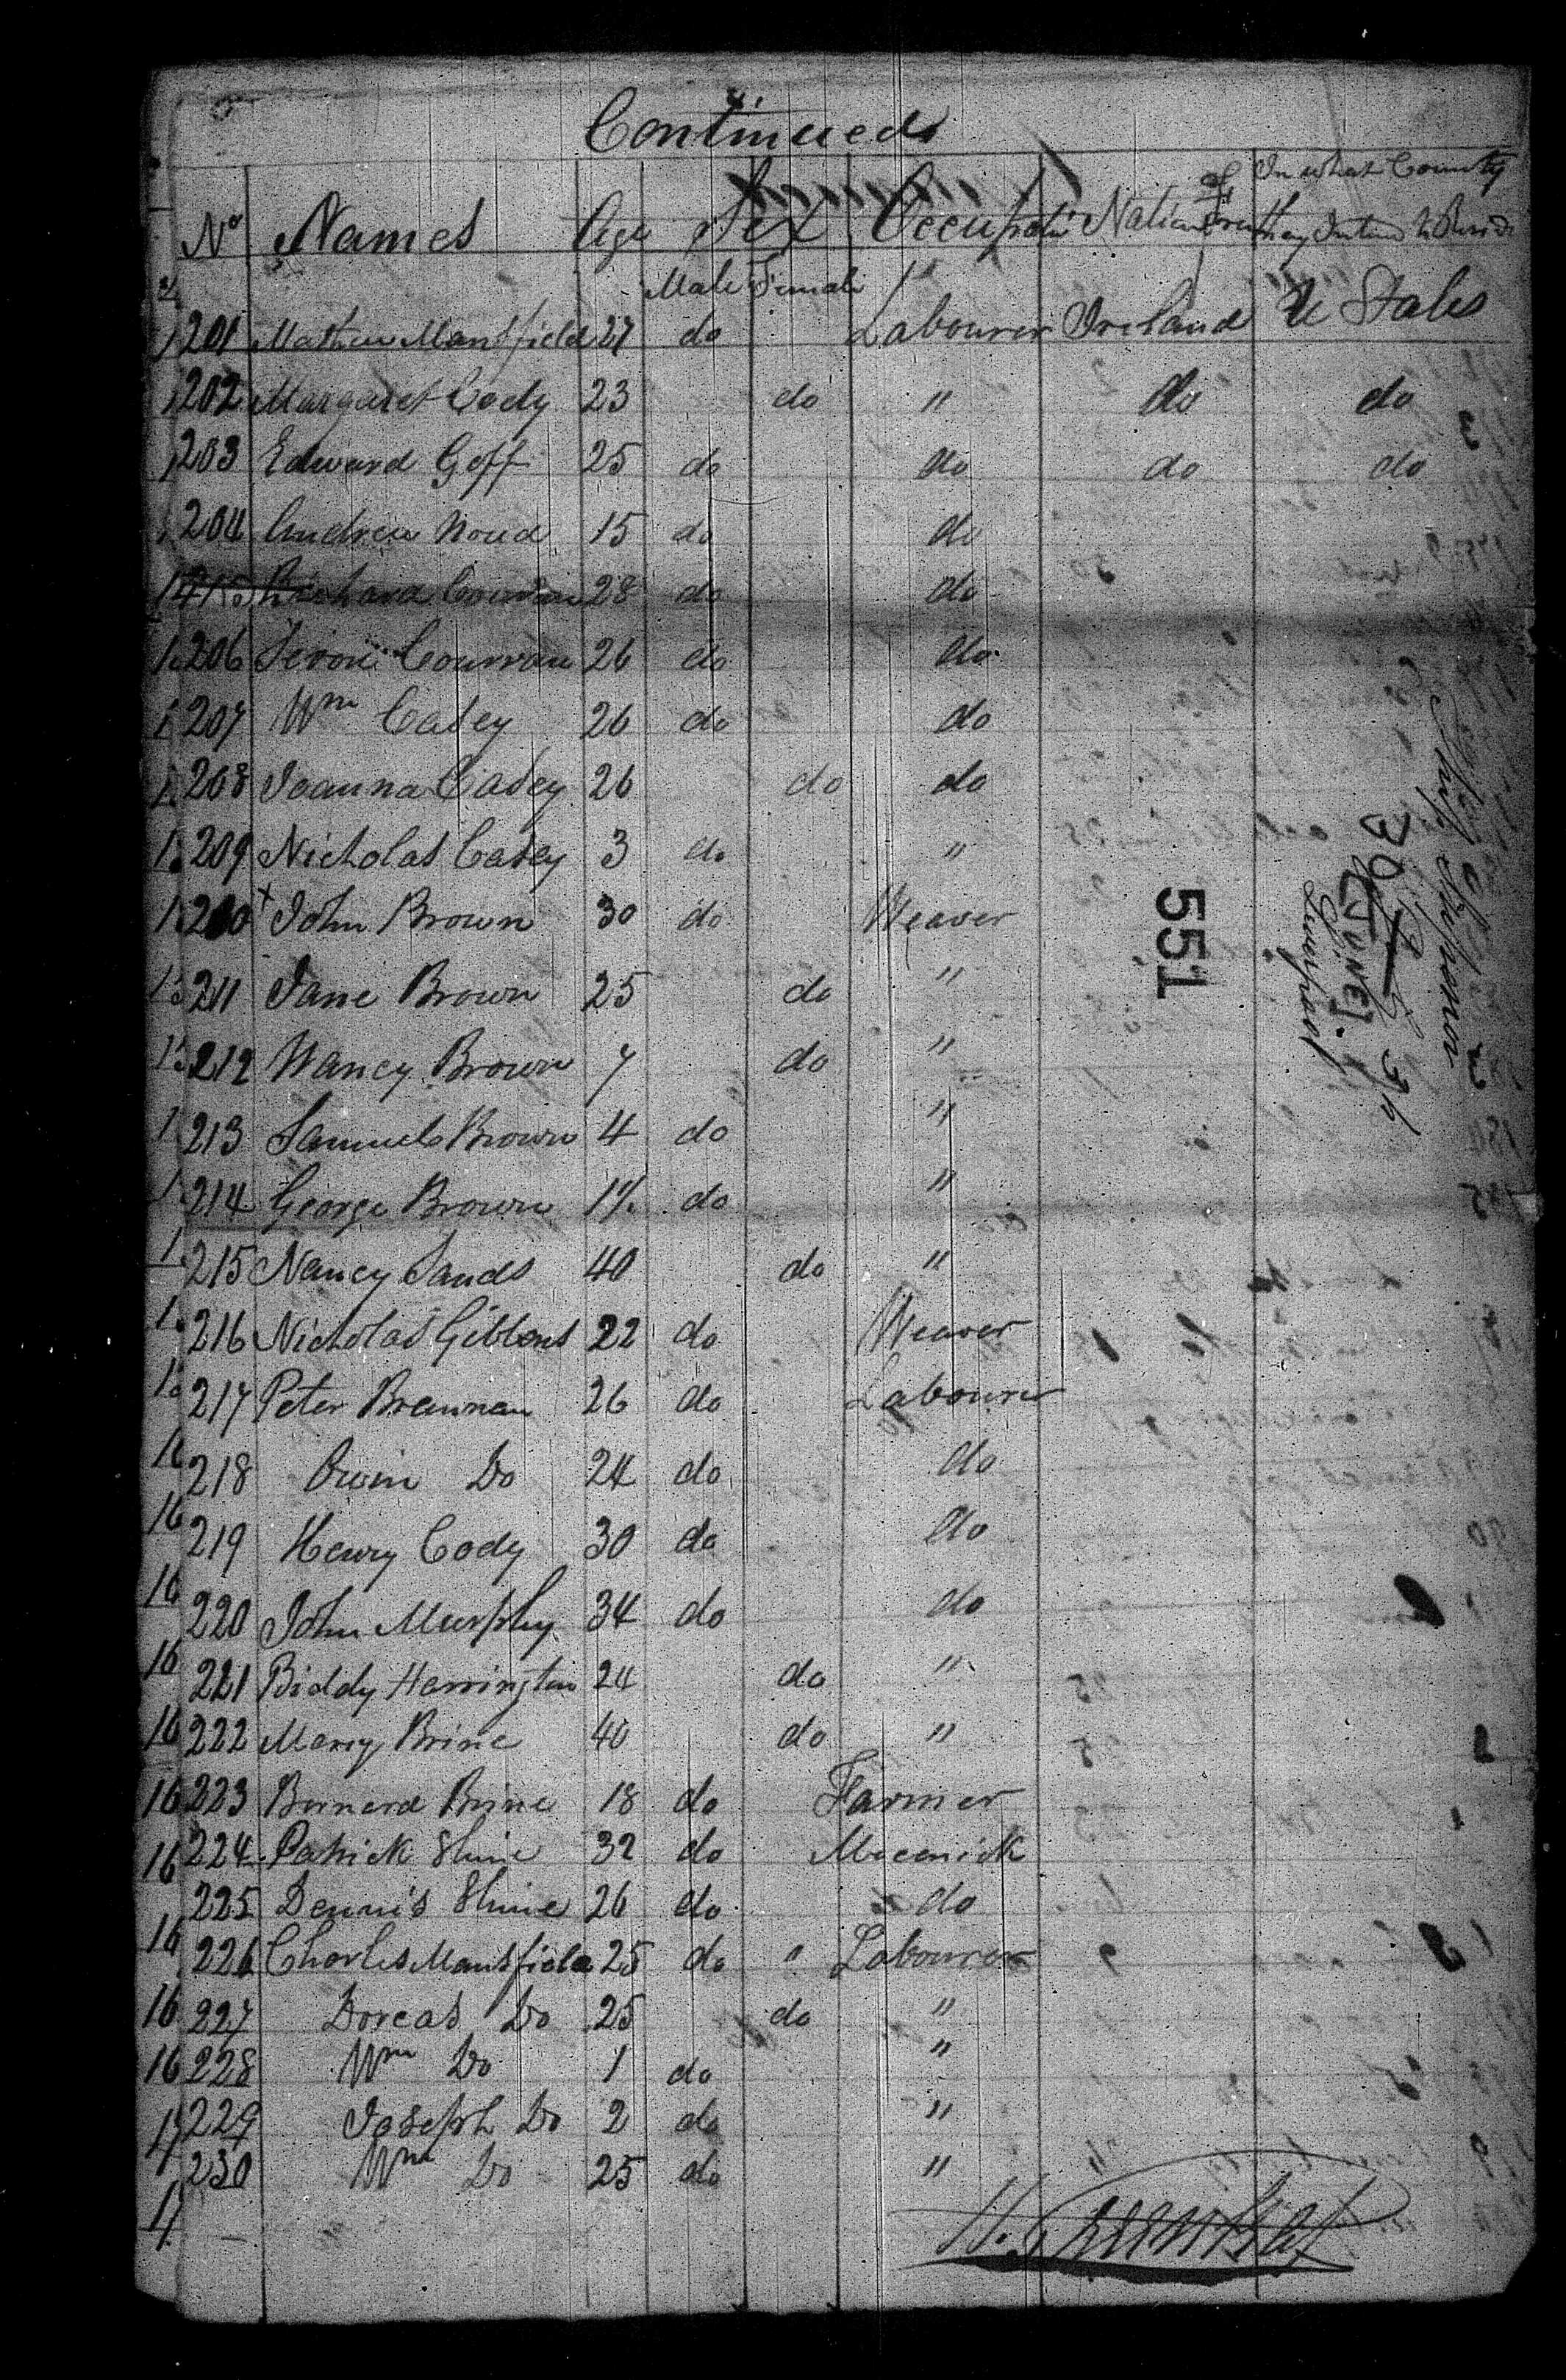 Continued
No Names Age Sex Occupation Nation of Birth In what Country They Intend to Reside
Male Female
201 Mathew Mansfield 27 do Labourer Ireland U States
202 Margaret Cody 23 do " do do
203 Edward Goff 25 do do do do
204 Andrew 15 do do
Richard 28 do do
206 Courran 26 do do
207 Wm Casey 26 do do
208 Joanna Casey 26 do do
209 Nicholas Casey 3 do "
210 John Brown 30 do Weaver
211 Jane Brown 25 do "
212 Nancy Brown 7 do "
213 Samuel Brown 4 do "
214 George Brown do "
215 Nancy Sands 40 do "
216 Nicholas Gibbons 22 do Weaver
217 Peter Brennan 26 do Labourer
218 Owin Do 24 do do
219 Henry Cody 30 do do
220 John Murphy 34 do do
221 Biddy Herrington 24 do "
222 Mary Brine 40 do "
223 Bernard Brine 18 do Farmer
224 Patrick Shine 32 do Mecenick
225 Dennis Shine 26 do do
226 Charles Mansfield 25 do " Labourer
227 Dorcas Do 25 do "
228 Wm Do 1 do "
229 Joseph Do 2 do "
230 Wm Do 25 do "
551
Ship
30
[JUNE]
Liverpool